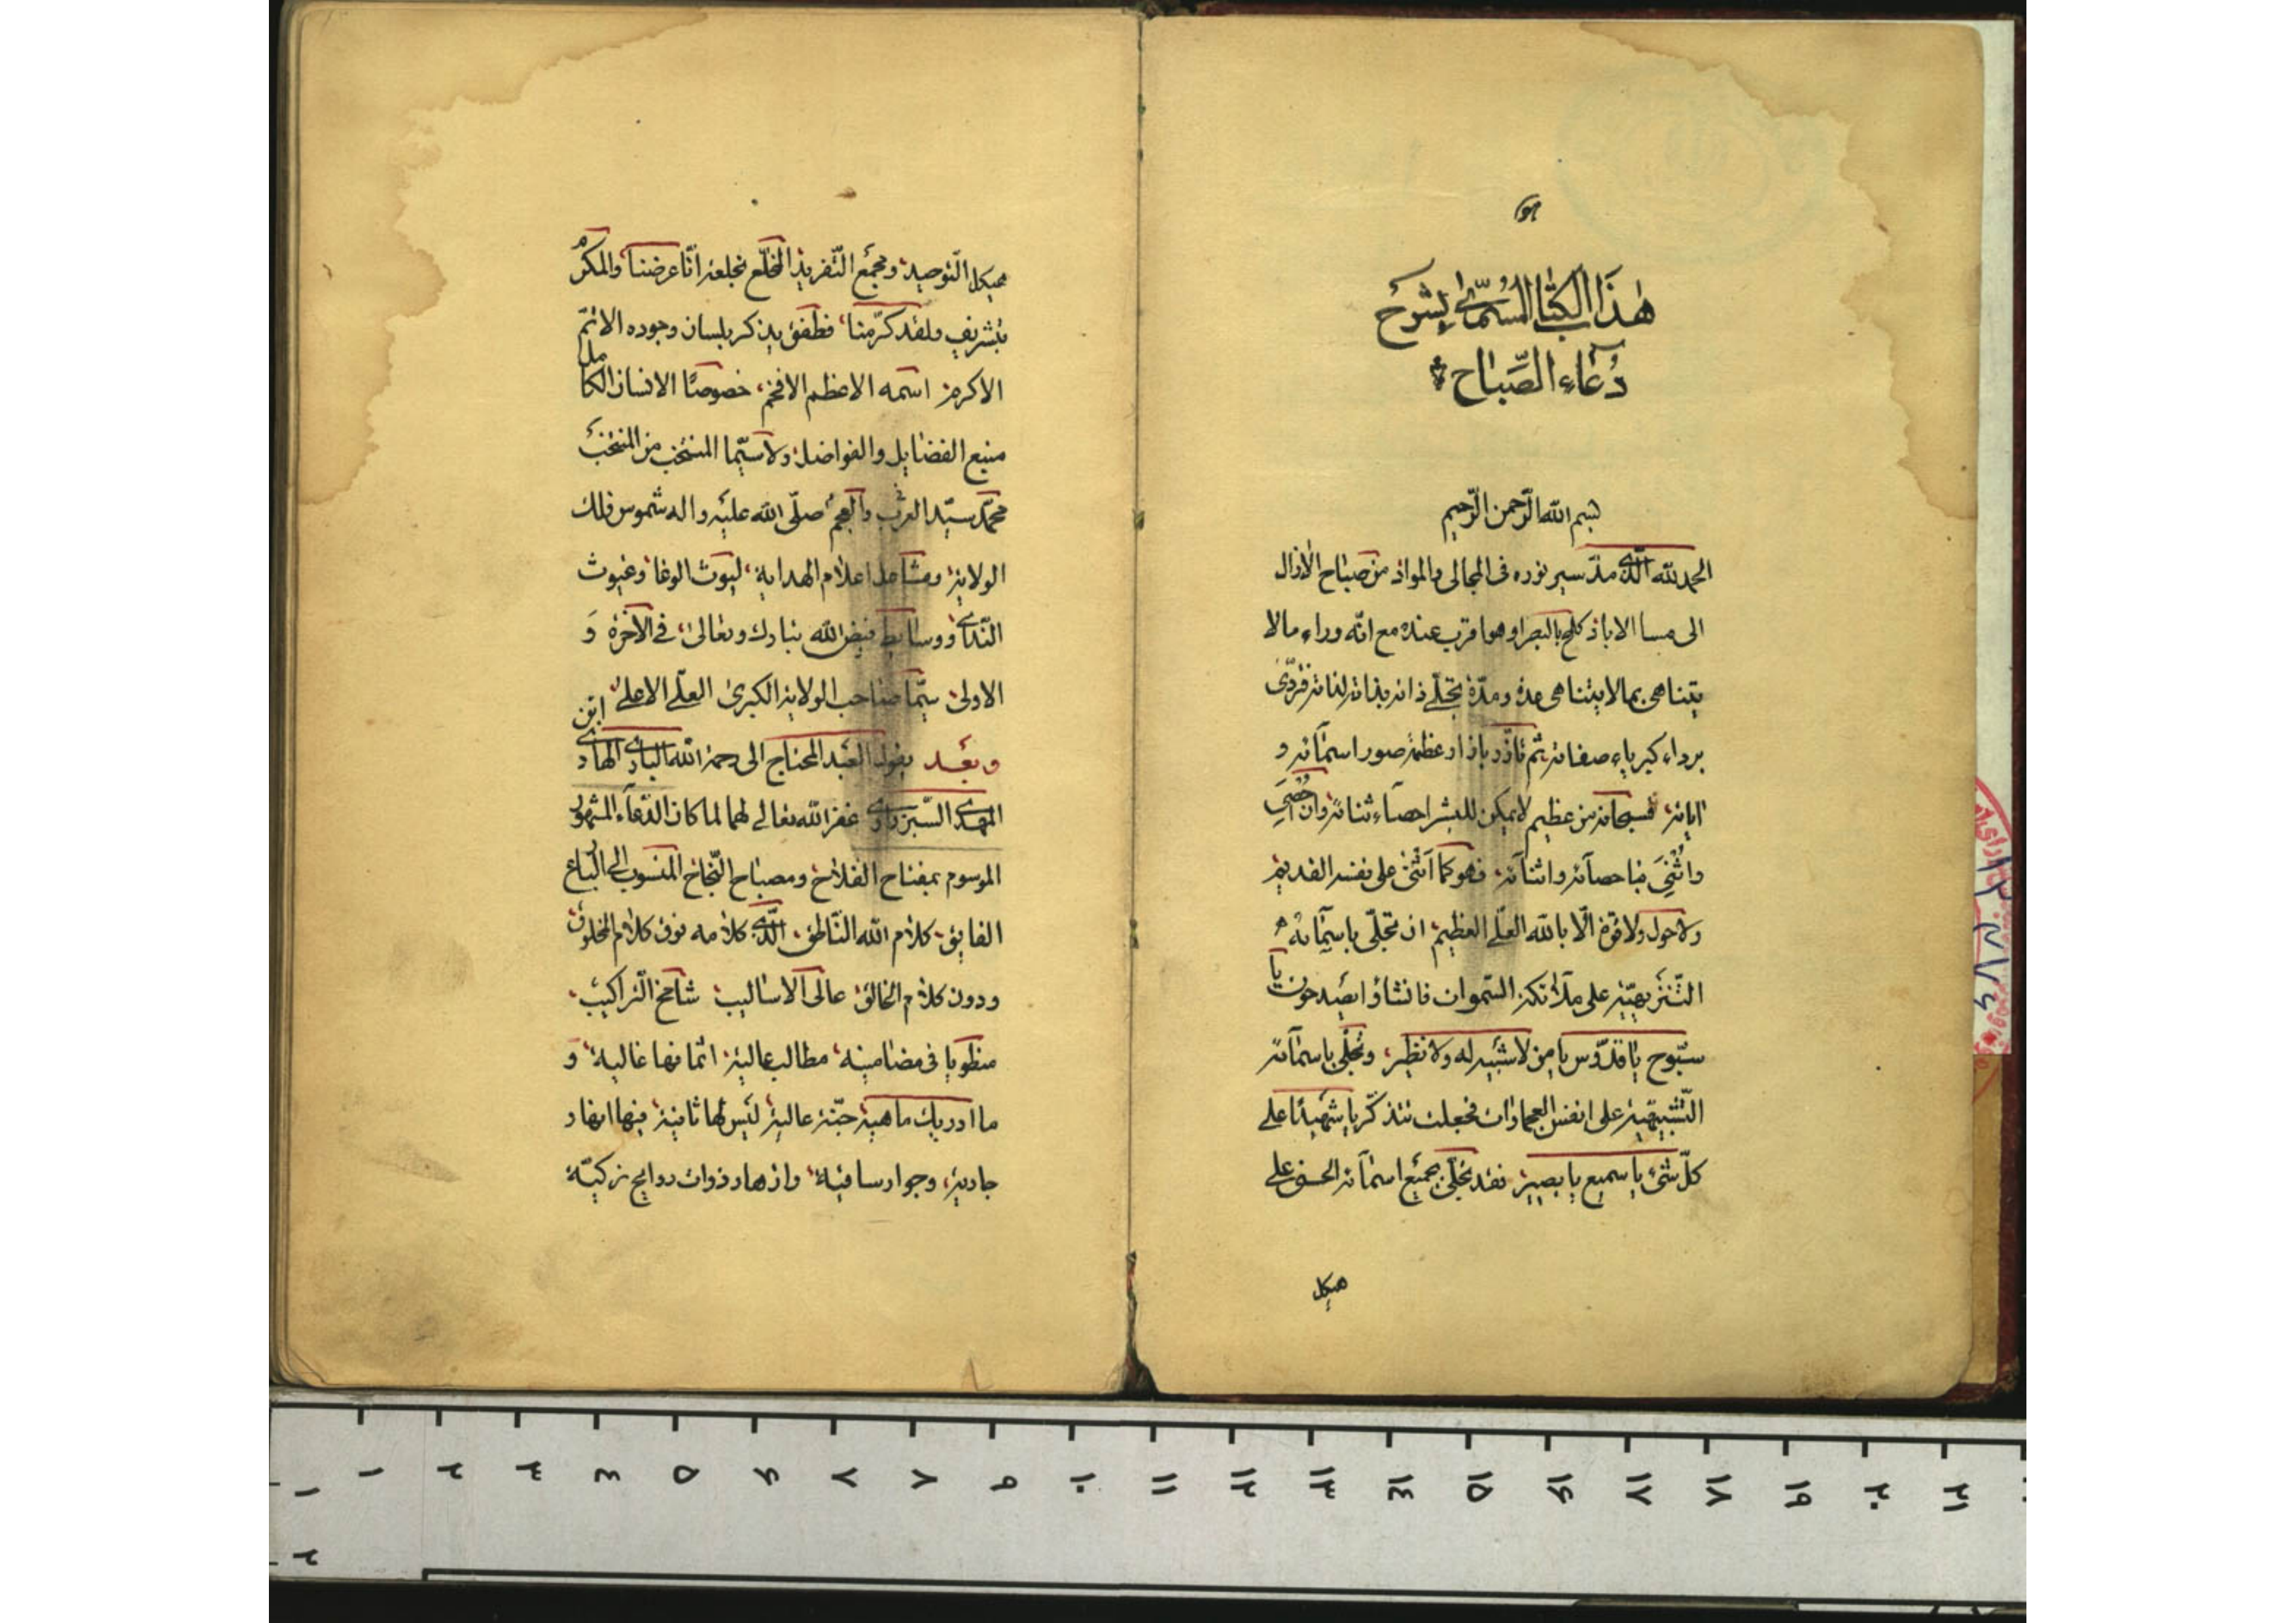 هو
هٰذَا الكتاب المسمّى بشرح
دُعآء الصّباح
بسم الله الرّحمن الرّحيم
الحمد لله الّذى مدّ سير نوره فى المجالى والمواد من صباح الأزال
الى مسا الاباد كلمح بالبصر او هو اقرب عنده مع انّه وراء ما لا
يتناهى بما لا يتناهى عدة ومدّة تجلّى ذاته بذاته لذاته فتردّى
برداء كبرياء صفاته ثم تأزّر بازار عظمة صور اسمائه و
اياته فسبحانه من عظيم لا يمكن للبشر احصاء ثنائه وان اُحْصِىَ
واُثْنِىَ فباحصائه واثنائه فهو كما اثنى على نفسه القديم
ولا حول ولا قوة الّا بالله العلّى العظيم ان تجلّى باسمآئه
التّنزيهيّة على ملائكة السّموات فانشاؤا يصيدحون يا
سبّوح يا قدّوس يا من لا شبيه له ولا نظير وتجلّى باسمآئه
التّشبيهيّة على انفس العجماوات فجعلت تتذكّر يا شهيدًا على
كلّ شئ يا سميع يا بصير فقد تجلّى بجميع اسمآئه الحسنى على
هيكل
هيكل التّوحيد ومجمع التّفريد المخلّع بخلعة انّا عرضنا والمكرّم
بتشريف ولقد كرّمنا فطفق يذكر بلسان وجوده الاتمّ
الاكرم اسمه الاعظم الافخم خصوصًا الانسان الكامل
منبع الفضايل والفواضل ولا سيّما المنتخب من المنتخب
محمّد سيّد العرب والعجم صلّى الله عليه واله شموس فلك
الولاية ومشاعل اعلام الهداية ليوث الوغا وغيوث
النّدى ووسايط فيض الله تبارك وتعالى فى الآخرة وَ
الاولى سيّما صاحب الولاية الكبرى العلّى الاعلى
وبعد يقول العبد المحتاج الى رحمة الله البارى الهادى ابن
المهدى السّبزوارى غفر الله تعالى لهما لما كان الدّعآء المشهور
الموسوم بمفتاح الفلاح ومصباح النّجاح المنسوب الى البارع
الفايق كلام الله النّاطق الّذى كلامه فوق كلام المخلوق
ودون كلام الخالق عالى الاساليب شامخ التّراكيب
منطويا فى مضامينه مطالب عالية اثمانها غالية وَ
ما ادريك ماهية جنّة عالية ليس لها ثانية فيها انهار
جارية وجوار ساقية وازهار ذوات روايح زكيّة